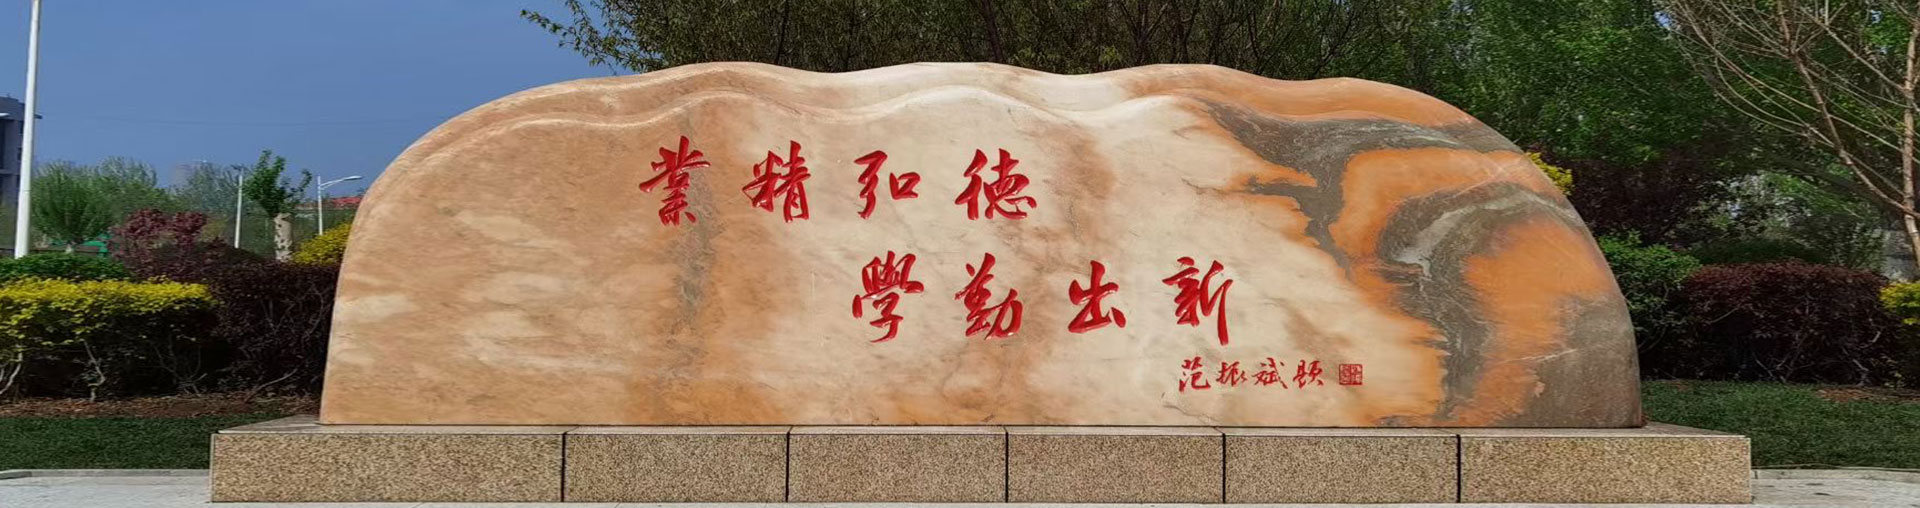 業精弘德
學勤出新
范振斌题